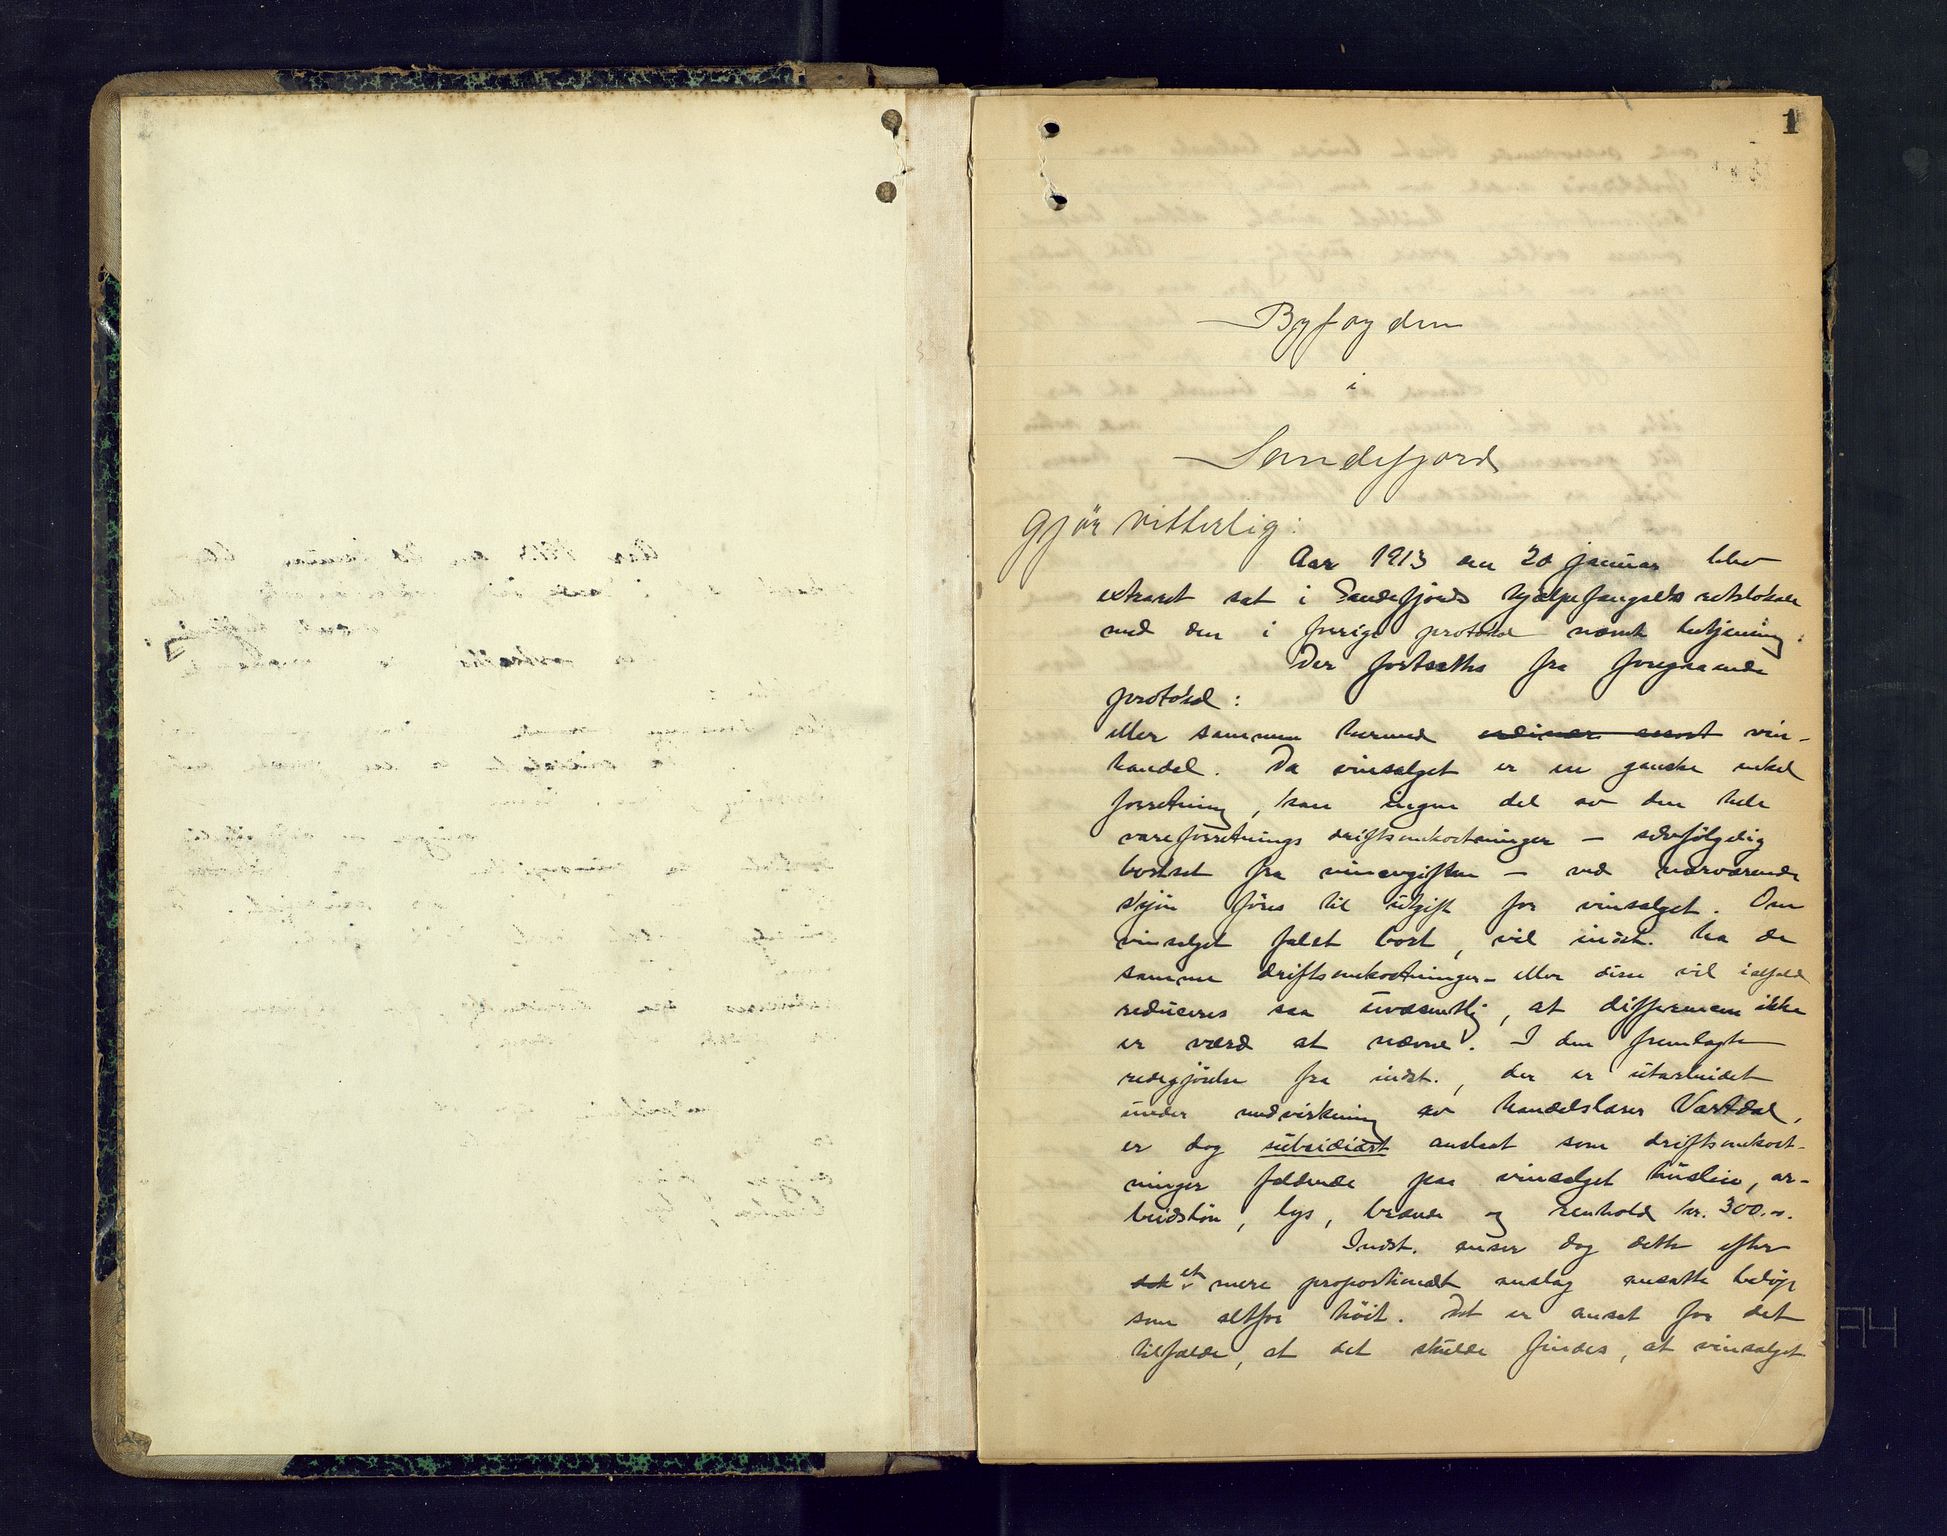 1
Byfogden
i
Sandefjord
gjør vitterlig:
Aar 1913 den 20 januar blev
extraret sat i Sandefjords hjælpefængsels retslokale
med den i forrige protokol nævnte betjening:
Der fortsattes fra foregaaende
protokol:
eller sammen hermed vin-
handel. Da vinsalget er en ganske enkel
forretning, kan ingen del av den hele
vareforretnings driftsomkostninger — selvfølgelig
bortset fra vinavgiften — ved nærværende
skjøn føres til utgift for vinsalget. Om
vinsalget faldt bort, vil indst. ha de
samme driftsomkostninger – eller disse vil ialfald
reduceres saa uvæsentlig, at differencen ikke
er værd at nævne. I den fremlagte
redegjørelse fra indst., der er utarbeidet
under medvirkning av handelslærer Vartdal,
er dog subsidiært anslaat som driftsomkost-
ninger faldende paa vinsalget husleie, ar-
beidsløn, lys, brænde og renhold kr. 300.00.
Indst. anser dog dette efter
et mere proportionalt anslag ansatte beløp
som altfor høit. Det er anset for det
tilfælde, at det skulde findes, at vinsalget